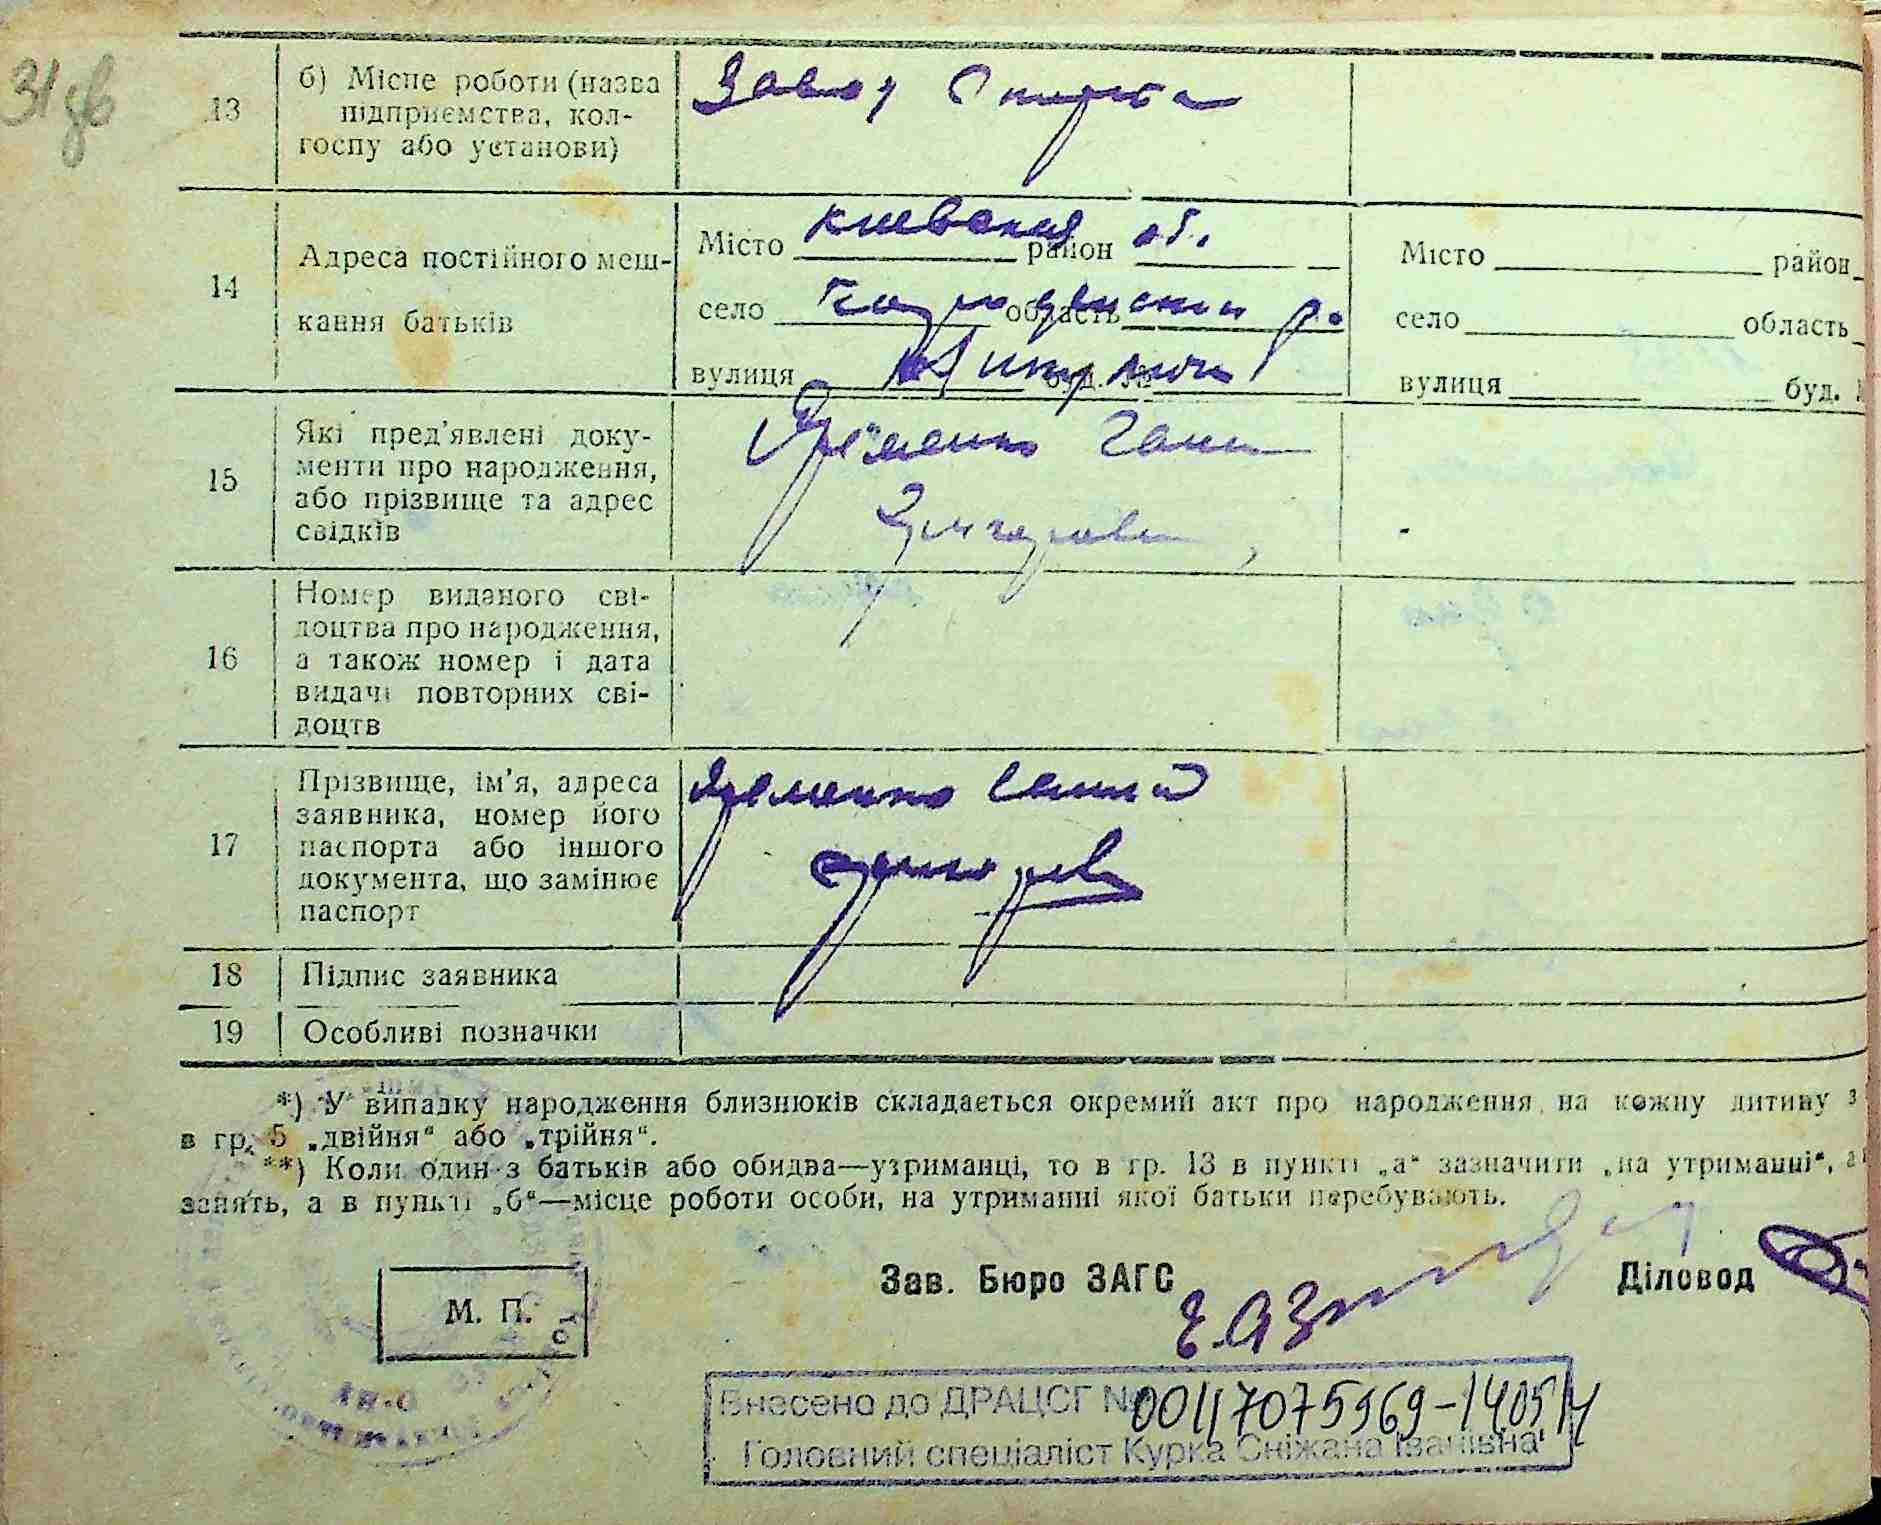 31 зв
13
б) Місце роботи (назва
підприємства, кол-
госпу або установи)
Завод
14
Адреса постійного меш-
кання батьків
Місто Киевская район об.
село область р.
вулиця буд. №
Місто район
село область
вулиця буд.
15
Які пред'явлені доку-
менти про народження,
або прізвище та адрес
свідків
Яременко
16
Номер виданого сві-
доцтва про народження,
а також номер і дата
видачі повторних сві-
доцтв
17
Прізвище, ім'я, адреса
заявника, номер його
паспорта або іншого
документа, що замінює
паспорт
Яременко
18
Підпис заявника
19
Особливі позначки
*) У випадку народження близнюків складається окремий акт про народження на кожну дитину з
в гр. 5 „двійня“ або „трійня“.
**) Коли один з батьків або обидва—утриманці, то в гр. 13 в пункті „а“ зазначити „на утриманні“, а
занять, а в пункті „б“—місце роботи особи, на утриманні якої батьки перебувають.
М. П.
Зав. Бюро ЗАГС
Діловод
Внесено до ДРАЦСГ № 00117075969-14054
Головний спеціаліст Курка Сніжана Іванівна